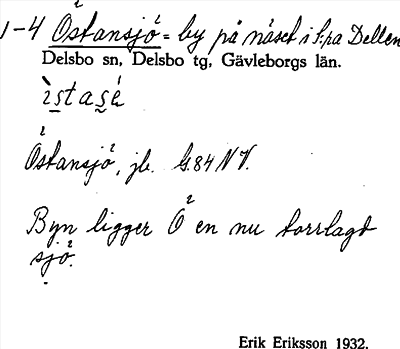 1-4 Östansjö = by på näset i S:ra Dellen
Delsbo sn, Delsbo tg, Gävleborgs län.
ìstasé
Östansjö, jb. G.84 NV.
Byn ligger Ö en nu torrlagd
sjö.
Erik Eriksson 1932.